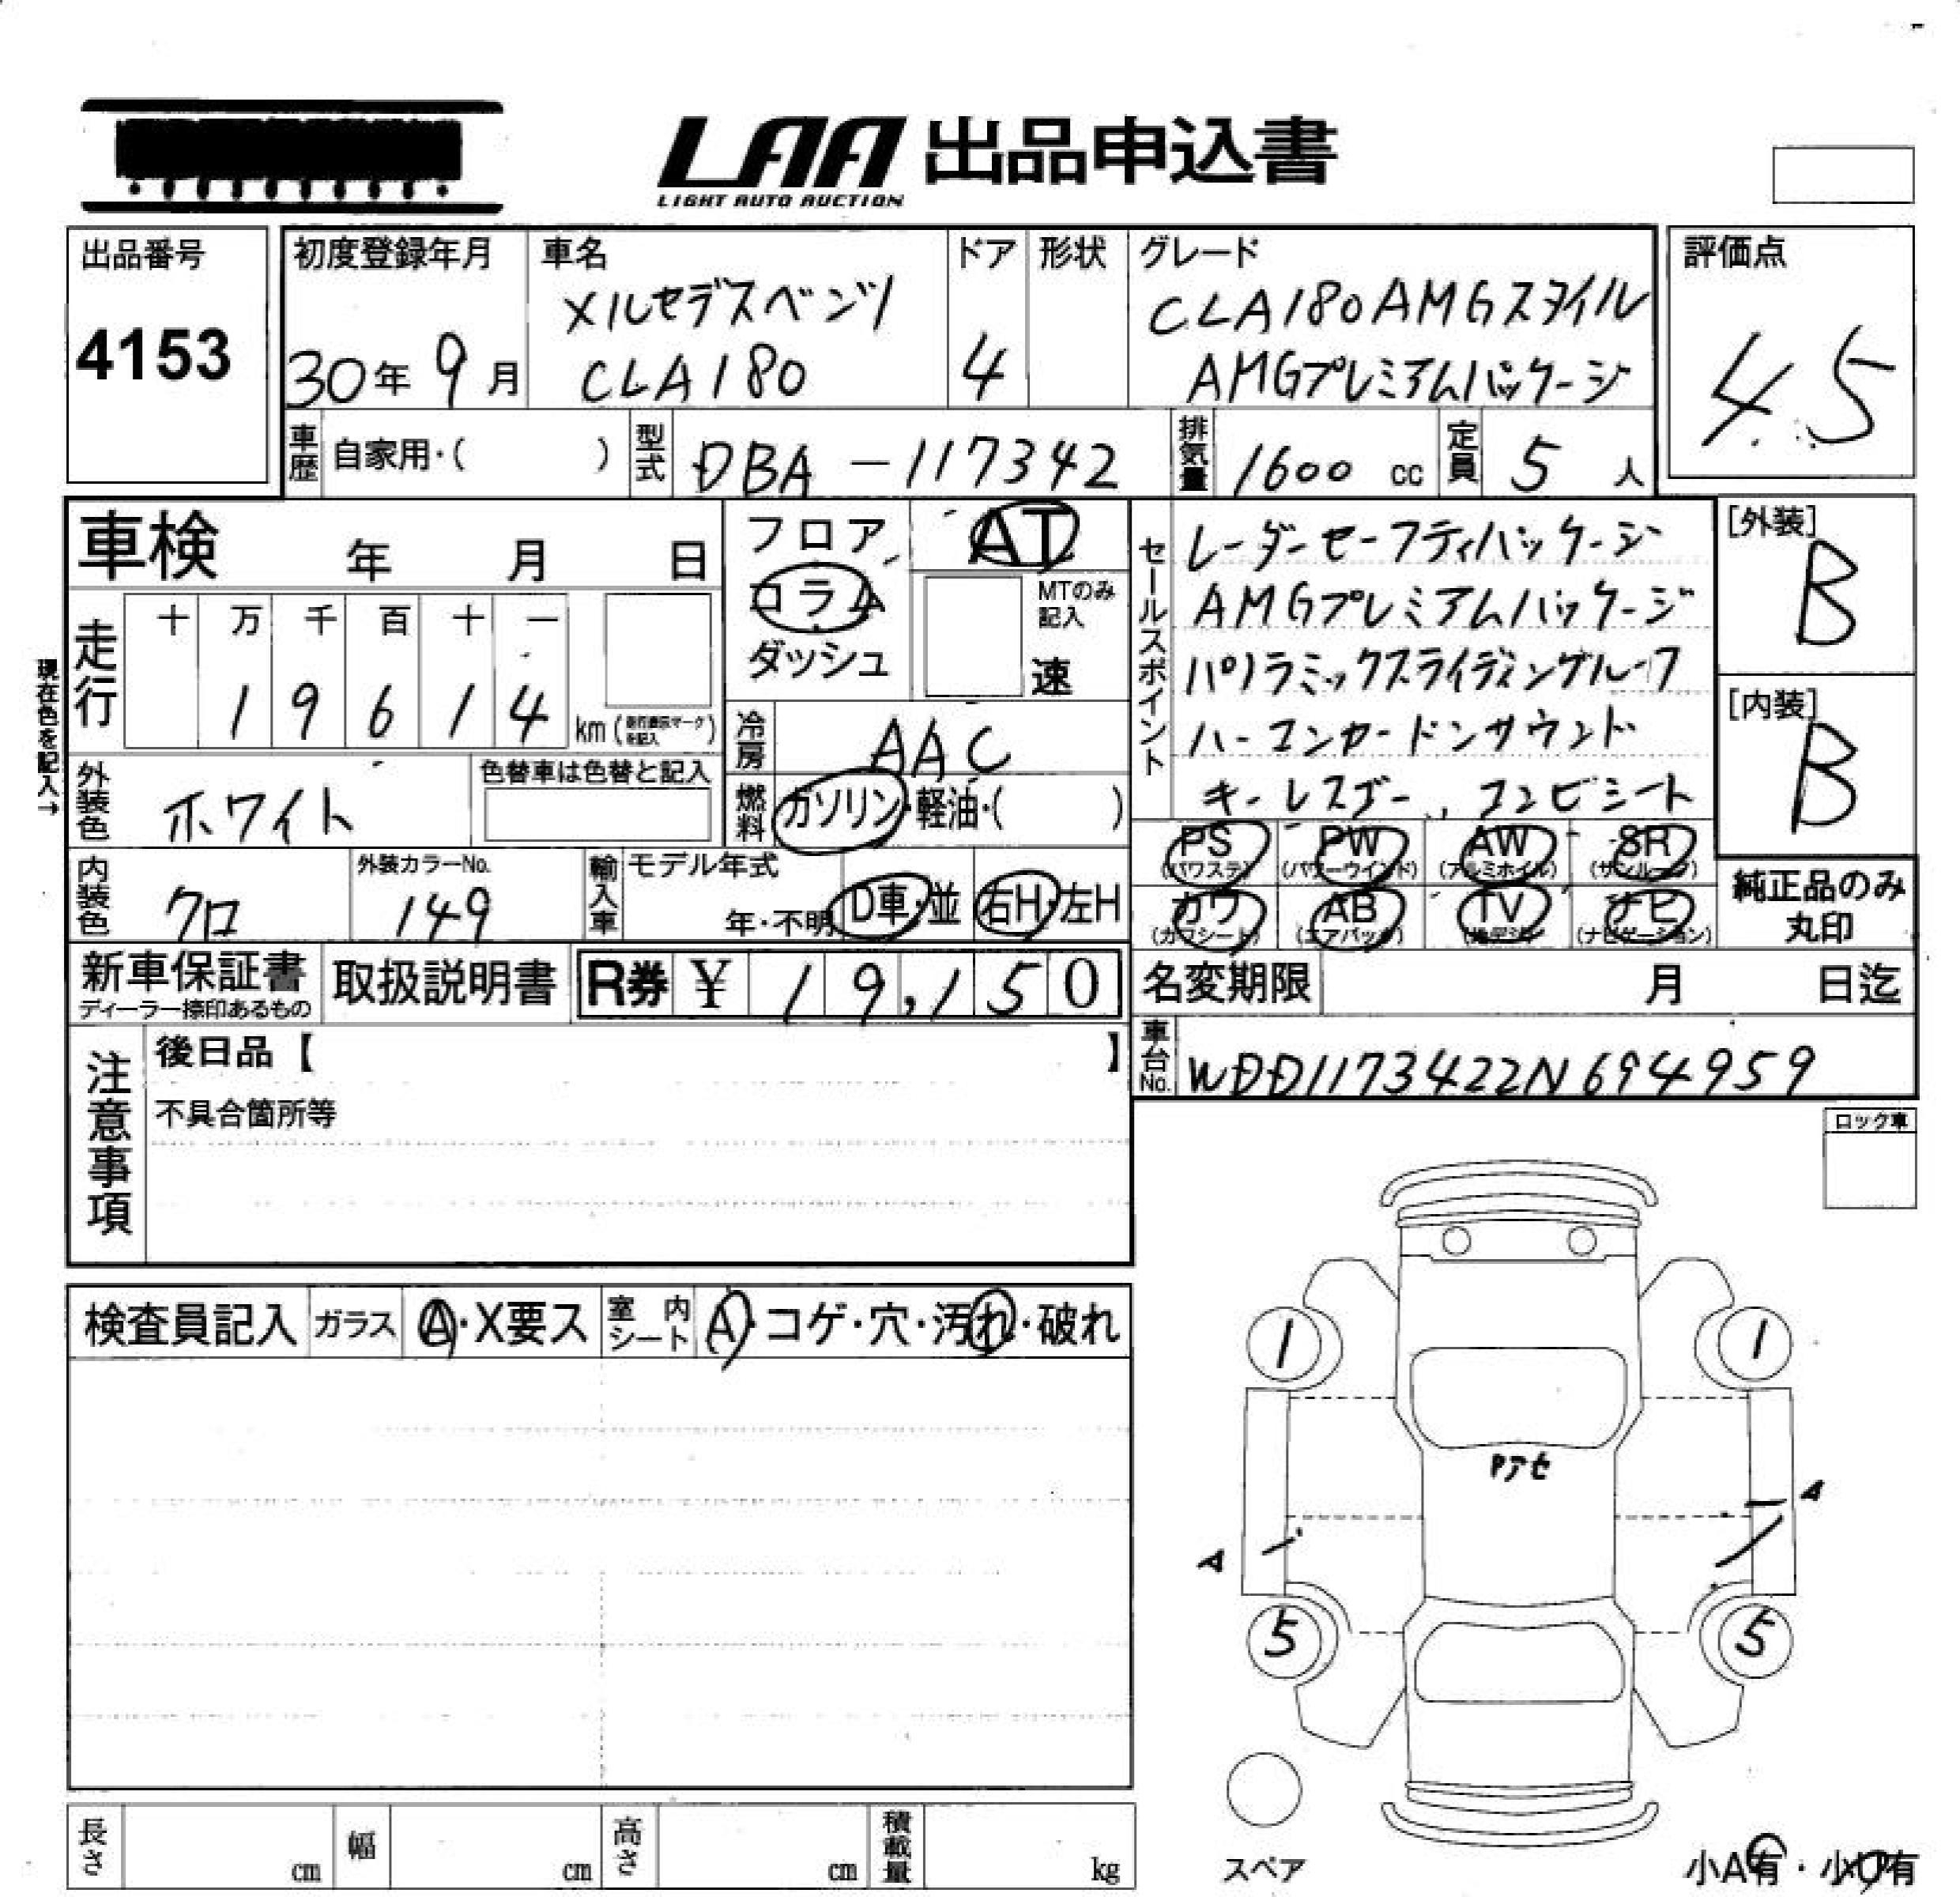 LAA 出品申込書
LIGHT AUTO AUCTION
出品番号
4153
初度登録年月
30年 9月
車名
メルセデスベンツ
CLA180
ドア
4
形状
グレード
CLA180 AMGスタイル
AMGプレミアムパッケージ
評価点
4.5
車歴 自家用・( )
型式 DBA-117342
排気量 1600 cc
定員 5 人
車検 年 月 日
フロア
コラム
ダッシュ
AT
MTのみ
記入
速
セールスポイント
レーダーセーフティパッケージ
AMGプレミアムパッケージ
パノラミックスライディングルーフ
ハーマンカードンサウンド
キーレスゴー、コンビシート
[外装]
B
[内装]
B
現在色を記入→
走行
十 万 千 百 十 一
1 9 6 1 4 km
冷房 AAC
外装色 ホワイト
色替車は色替と記入
燃料 ガソリン・軽油・( )
PS (パワステ)
PW (パワーウインド)
AW (アルミホイル)
SR (サンルーフ)
カワ (カワシート)
AB (エアバック)
TV
ナビ (ナビゲーション)
純正品のみ
丸印
内装色 クロ
外装カラーNo.
149
輸入車 モデル年式
年・不明
D車・並
右H・左H
新車保証書
ディーラー捺印あるもの
取扱説明書
R券 ¥ 19,150
名変期限 月 日迄
車台No. WDD1173422N694959
注意事項
後日品【 】
不具合箇所等
ロック車
検査員記入 ガラス A・X要ス 室内シート A・コゲ・穴・汚れ・破れ
1 1
A
A
5 5
スペア
長さ cm 幅 cm 高さ cm 積載量 kg
小A有・小U有